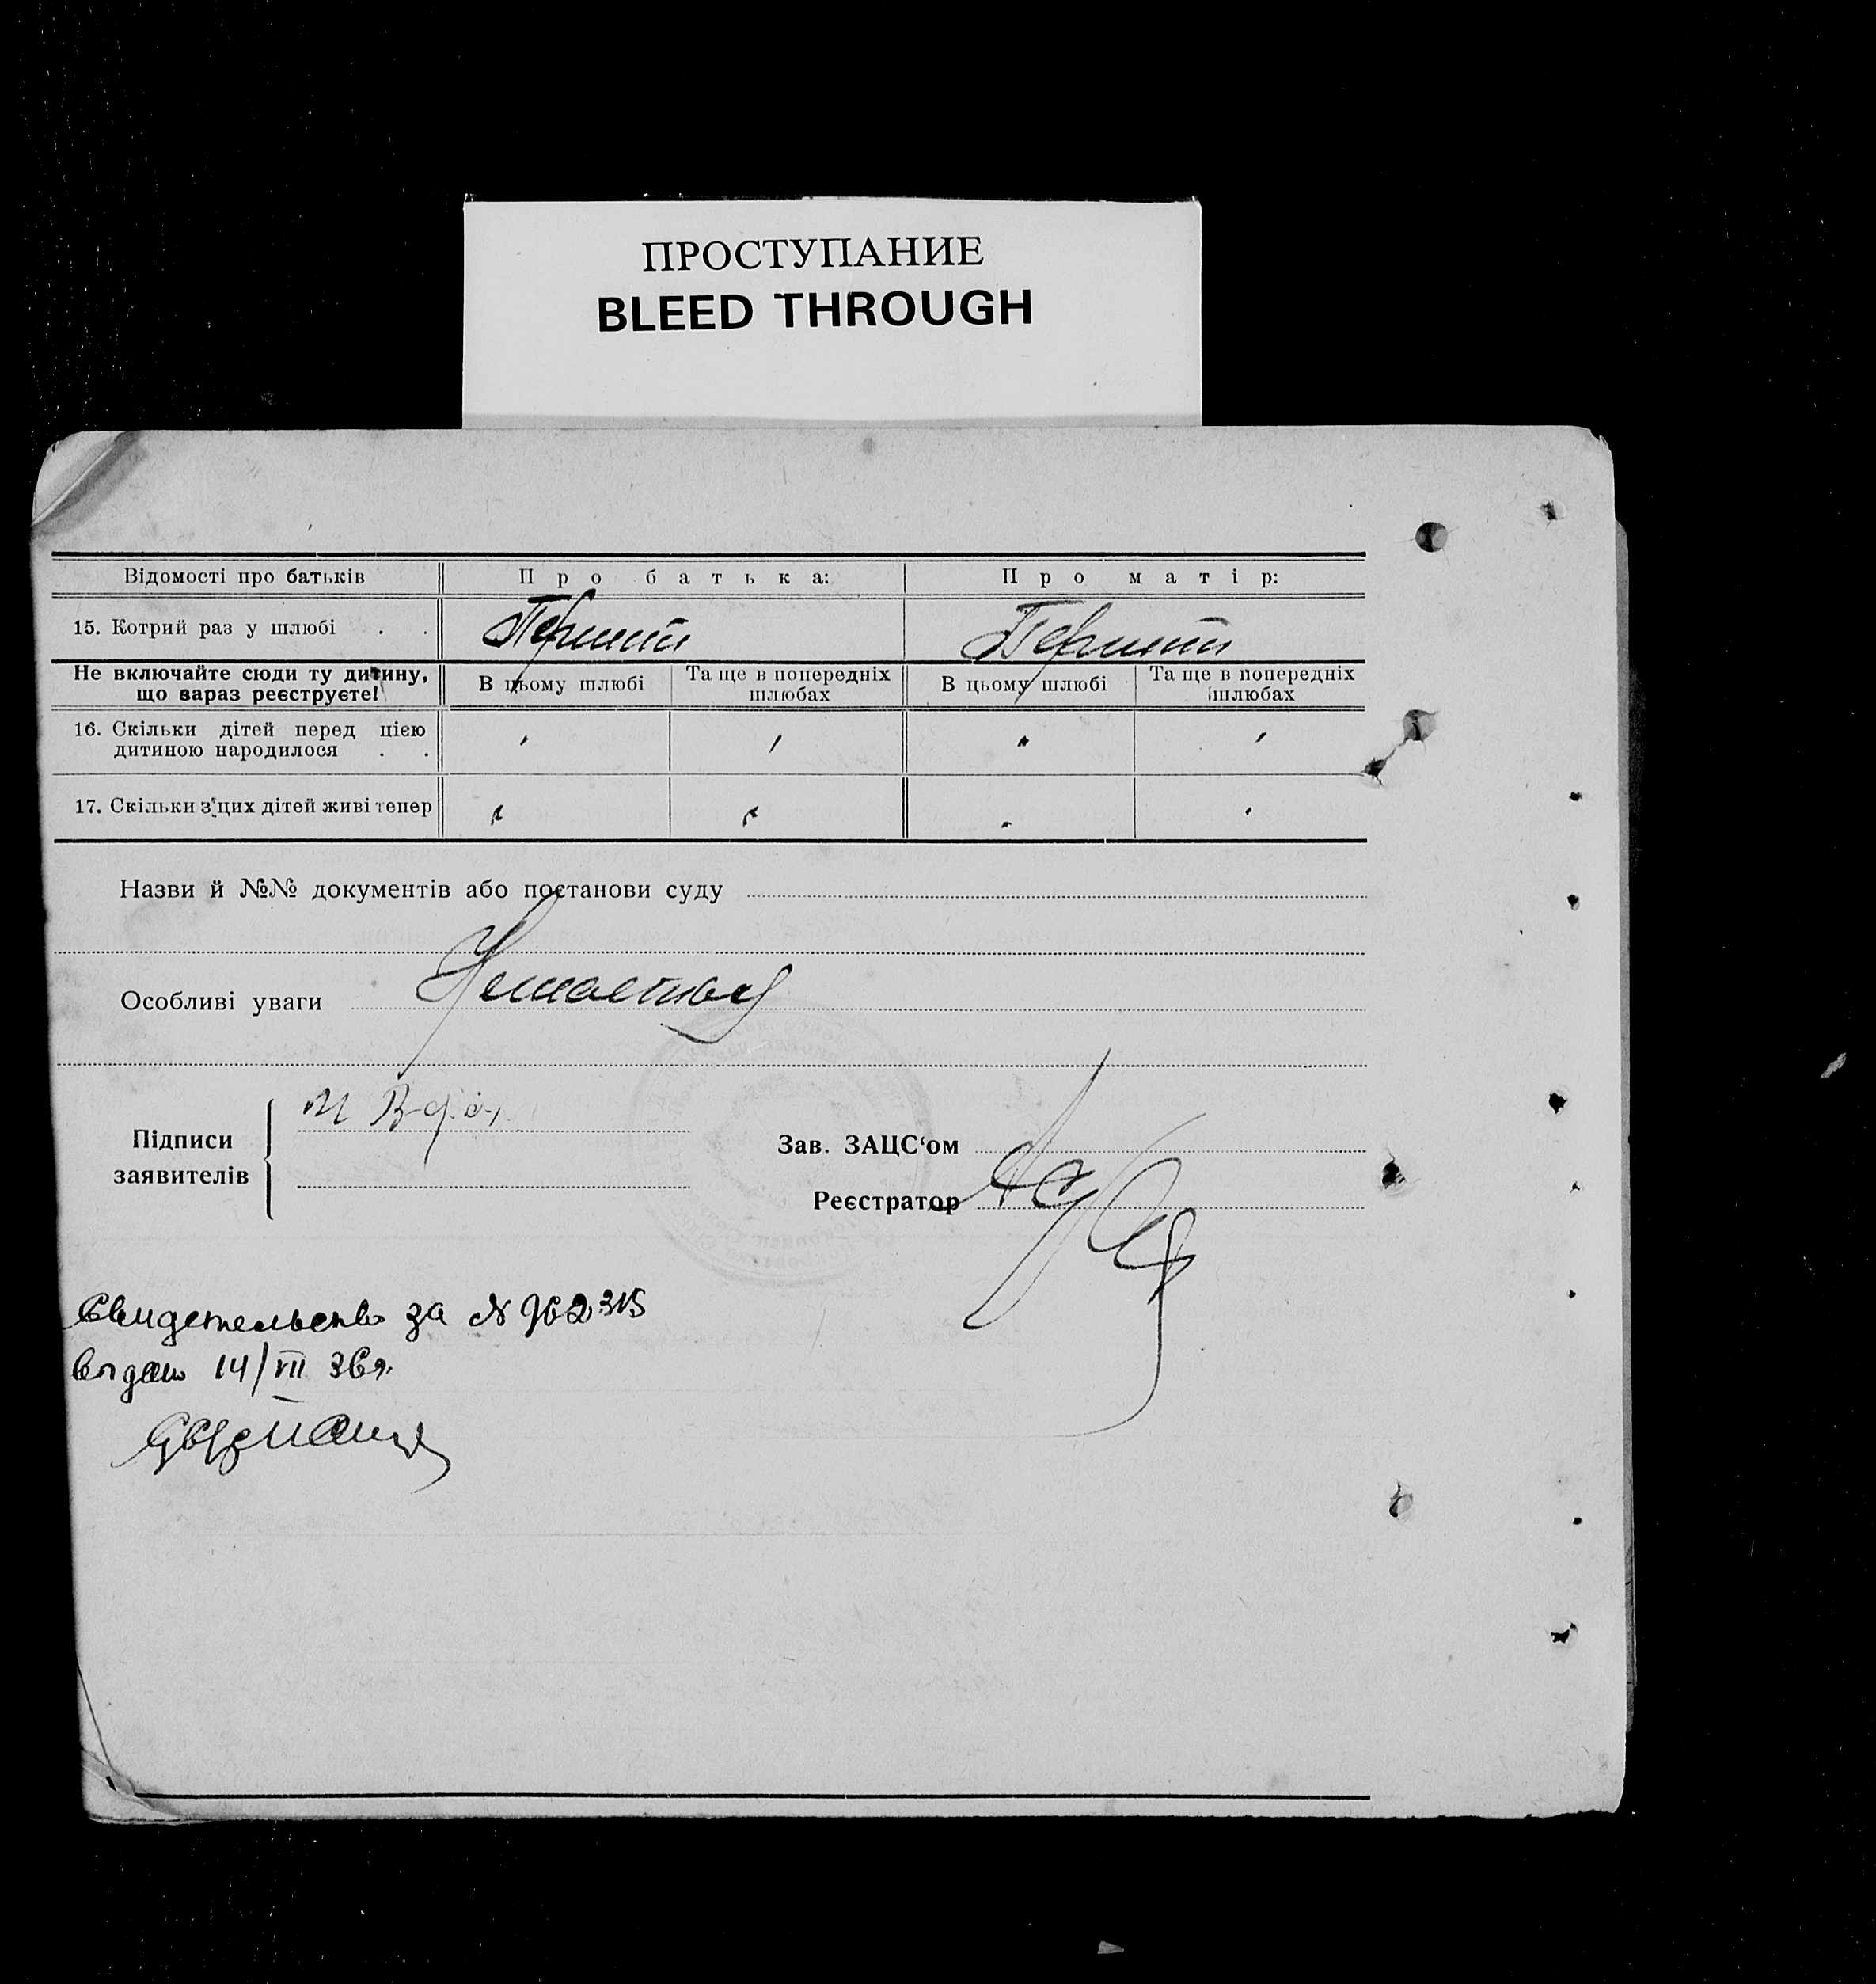 ПРОСТУПАНИЕ
BLEED THROUGH
Відомості про батьків Про батька: Про матір:
15. Котрий раз у шлюбі . . Перший Перший
Не включайте сюди ту дитину, що зараз реєструєте! В цьому шлюбі Та ще в попередніх шлюбах В цьому шлюбі Та ще в попередніх шлюбах
16. Скільки дітей перед цією
дитиною народилося . .
17. Скільки з цих дітей живі тепер
Назви й №№ документів або постанови суду
Особливі уваги
Підписи
заявителів
Зав. ЗАЦС‘ом
Реєстратор
Свидетельство за N 962315
выдано 14/VII 36г.